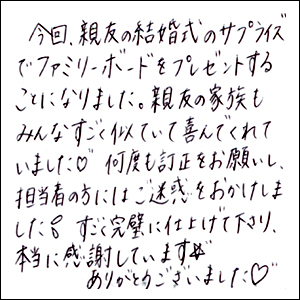 今回、親友の結婚式のサプライズ
でファミリーボードをプレゼントする
ことになりました。親友の家族も
みんなすごく似ていて喜んでくれて
いました♡ 何度も訂正をお願いし、
担当者の方にはご迷惑をおかけしま
した。すごく完璧に仕上げて下さり、
本当に感謝しています
ありがとうございました♡